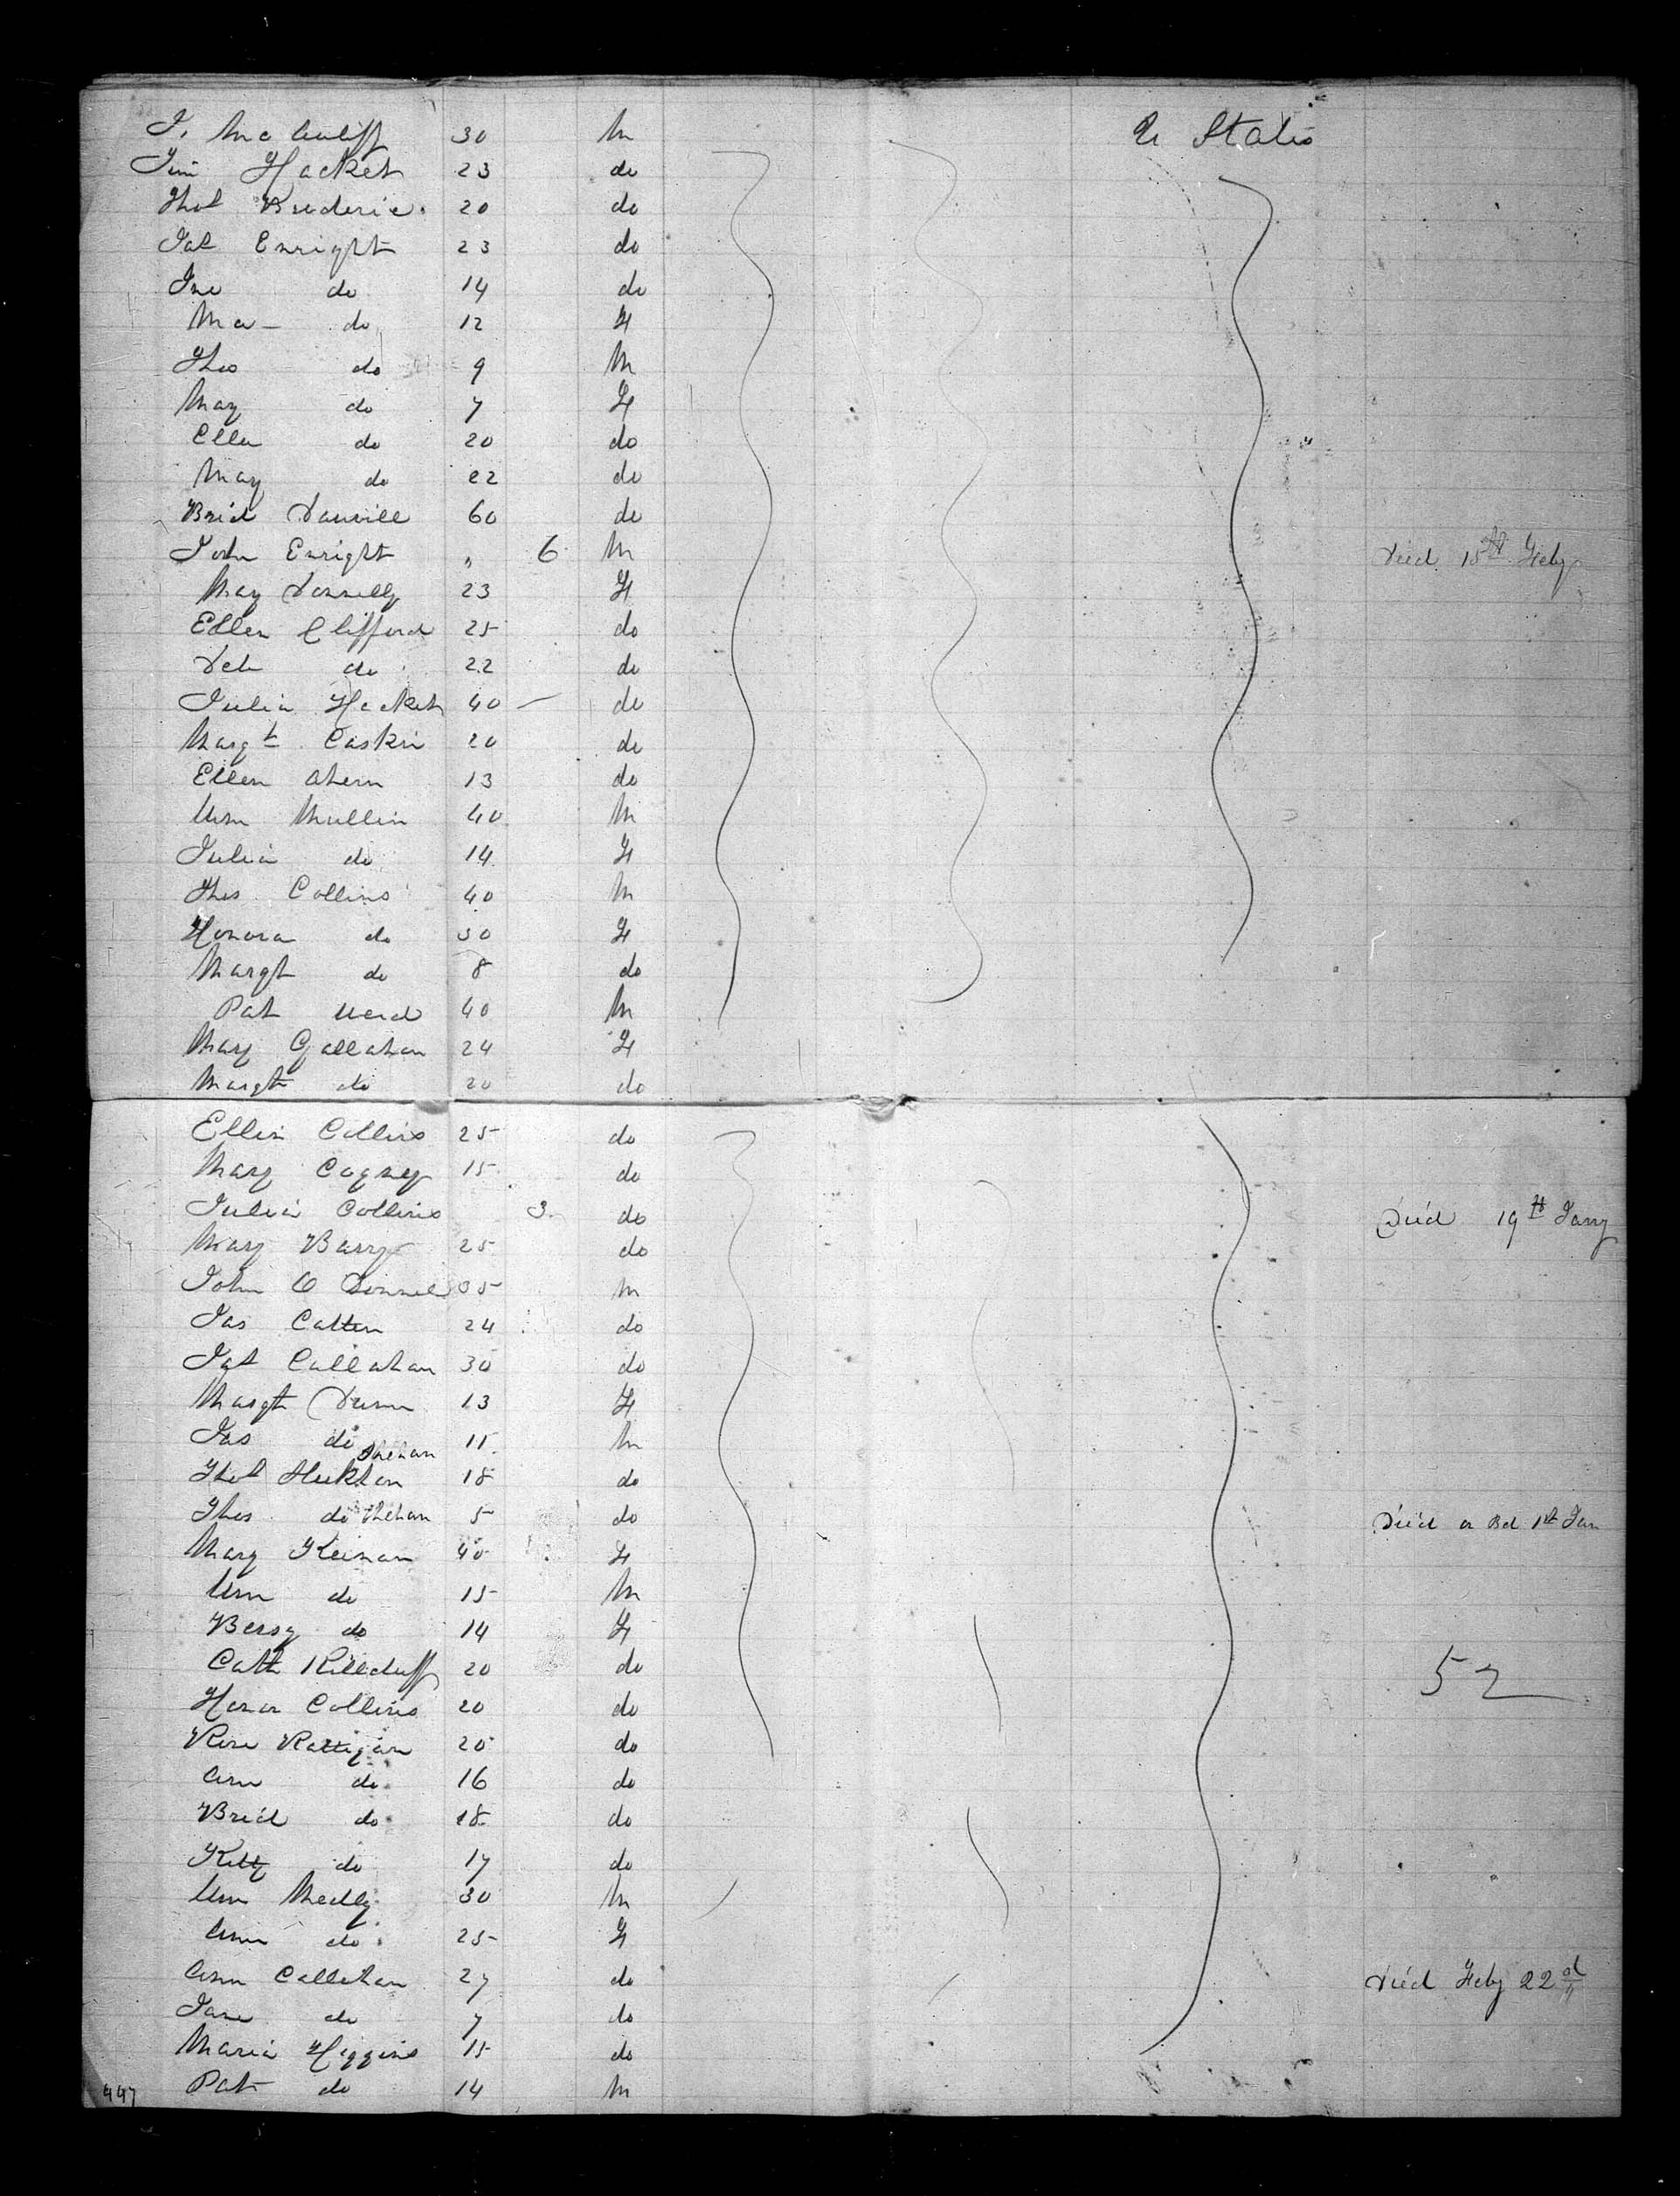 J. McAuliff 30 M U States
Jim Hacket 23 do
Thos Broderic. 20 do
Pat Enright 23 do
Jno do 14 do
Ma- do 12 F
Tho do 9 M
May do 7 F
Ellen do 20 do
May do 22 do
Brid 60 do
John Enright " 6 M Died 15th Feby
May Donnelly 23 F
Ellen Clifford 25 do
do 22 do
Julia Hacket 40 - do
Margt 20 do
Ellen Ahern 13 do
Wm Mullin 40 M
Julia do 14 F
Thos Collins 40 M
Honora do 30 F
Margt do 8 do
Pat Ward 40 M
Mary Gallahan 24 F
Margt do 20 do
Ellen Collins 25 do
Mary Cogney 15 do
Julia Collins 3 do Died 19th Jany
Mary Barry 25 do
John O Donnel 35 M
Jas Catten 24 do
Pat Callahan 30 do
Margt Dunn 13 F
Jas do 11 M
Shehan
Thos 18 do
Thos do Shehan 5 do Died on Bd 1st Jan
Mary Keenan 40 F
Wm do 15 M
Bessy do 14 F
Cath Killduff 20 do 52
Honor Collins 20 do
Rose Rattigan 20 do
Ann do 16 do
Brid do 18 do
Kitty do 17 do
Wm Medly 30 M
Ann do 25 F
Ann Callahan 27 do Died Feby 22d
Jane do 7 do
Maria Higgins 15 do
Pat do 14 M
447